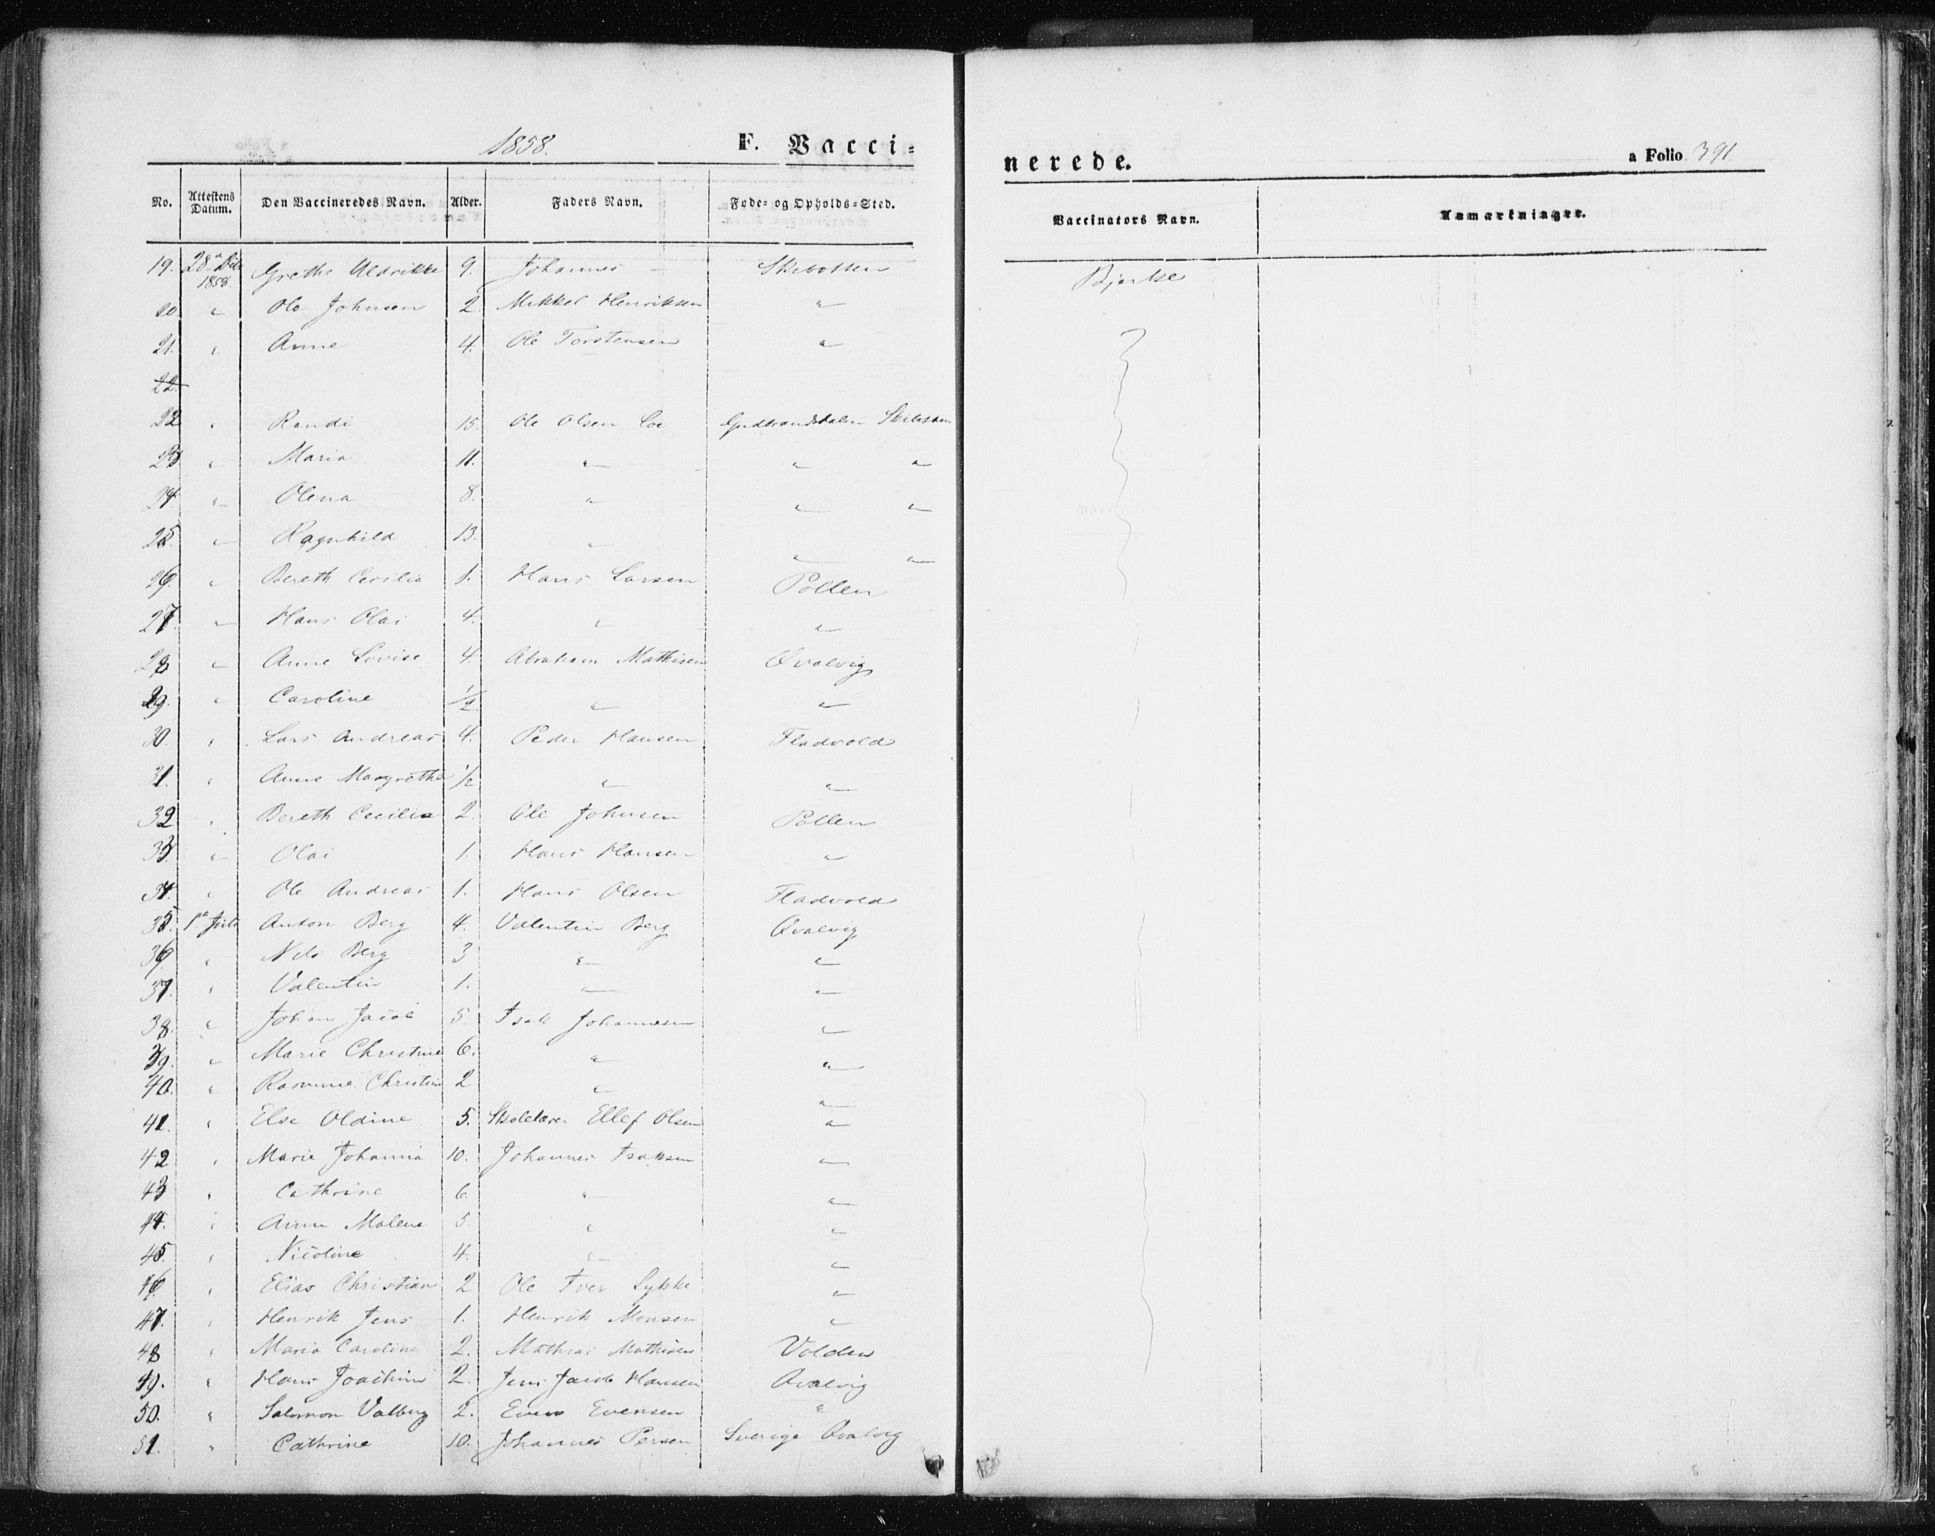 1858. F. Vacci-
nerede. a Folio 391
No. Attestens Datum. Den Vaccineredes Navn. Alder. Faders Navn. Føde- og Opholds-Sted. Vaccinators Navn. Anmærkninger.
19. 28 1858 Grethe Uldrikke 9. Johannes — Skibotten Bjerke
20. " Ole Johnsen 2. Mikkel Henriksen "
21. " Anne 4. Ole Torstensen "
22
22 " Randi 15. Ole Olsen Loe Gudbrandsdalen Skibotten
23 " Maria 11. " " "
24 " Olena 8. " " "
25. " Ragnhild 13. " " "
26. " Bereth Cecilia 1. Hans Larsen Pollen
27. " Hans Olai 4. " "
28 " Anne Lovise 4. Abraham Mathisen Qvalvig
29. " Caroline 1/2 " "
30. " Lars Andreas 4. Peder Hansen Fladvold
31. " Anne Margrethe 1/2 " "
32 " Bereth Cecilia 2. Ole Johnsen Pollen
33 " Olai 1. Hans Hansen "
34. " Ole Andreas 1. Hans Olsen Fladvold
35. 1ª Anton Berg 4. Valentin Berg Qvalvig
36. " Nils Berg 3 " "
37. " Valentin 1. " "
38. " Johan Jacob 5. Isak Johannesen "
39. " Marie Christine 6. " "
40. " Rasmine Christine 2 " "
41. " Else Oldine 5. Skolelærer Ellef Olsen "
42 " Marie Johanna 10. Johannes Isaksen "
43 " Cathrine 6. " "
44. " Anne Malene 5. " "
45 " Nicoline 4. " "
46 " Elias Christian 2 Ole Iver Lykke "
47. " Henrik Jens 1. Henrik Monsen "
48 " Maria Caroline 2. Mathias Mathisen Volden
49. " Hans Joachim 2. Jens Jacob Hansen Qvalvig
50. " Salomon Valberg 2. Even Evensen "
51. " Cathrine 10. Johannes Persen Sverige Qvalvig